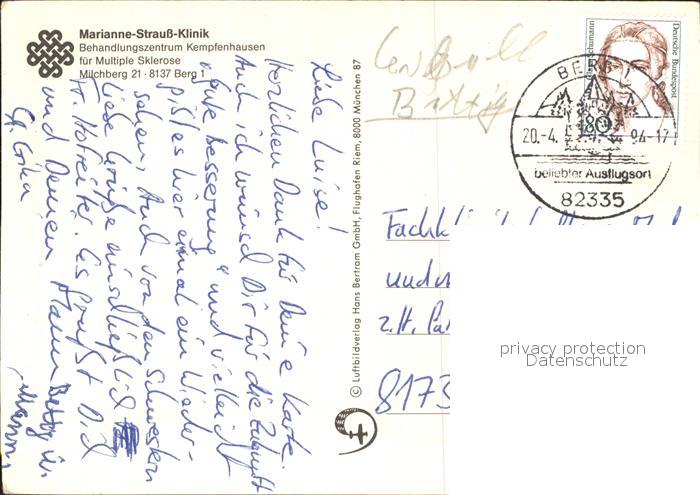 Marianne-Strauß-Klinik
Behandlungszentrum Kempfenhausen
für Multiple Sklerose
Milchberg 21 · 8137 Berg 1
Liebe Luise!
Herzlichen Dank für Deine Karte.
Auch ich wünsch Dir für die Zukunft
"gute Besserung" und vielleicht
gibt es hier einmal ein Wieder-
sehen, Auch von den Schwestern
liebe Grüße einschließlich
Fr. Hofreiter. Es grüßt Dich
und Deinen Mann
Erika
© Luftbildverlag Hans Bertram GmbH, Flughafen Riem, 8000 München 87
Deutsche Bundespost
Schumann
80
BERG
20.-4. 94-17
beliebter Ausflugsort
82335
Fachkl
und
z.H.
8173
privacy protection
Datenschutz